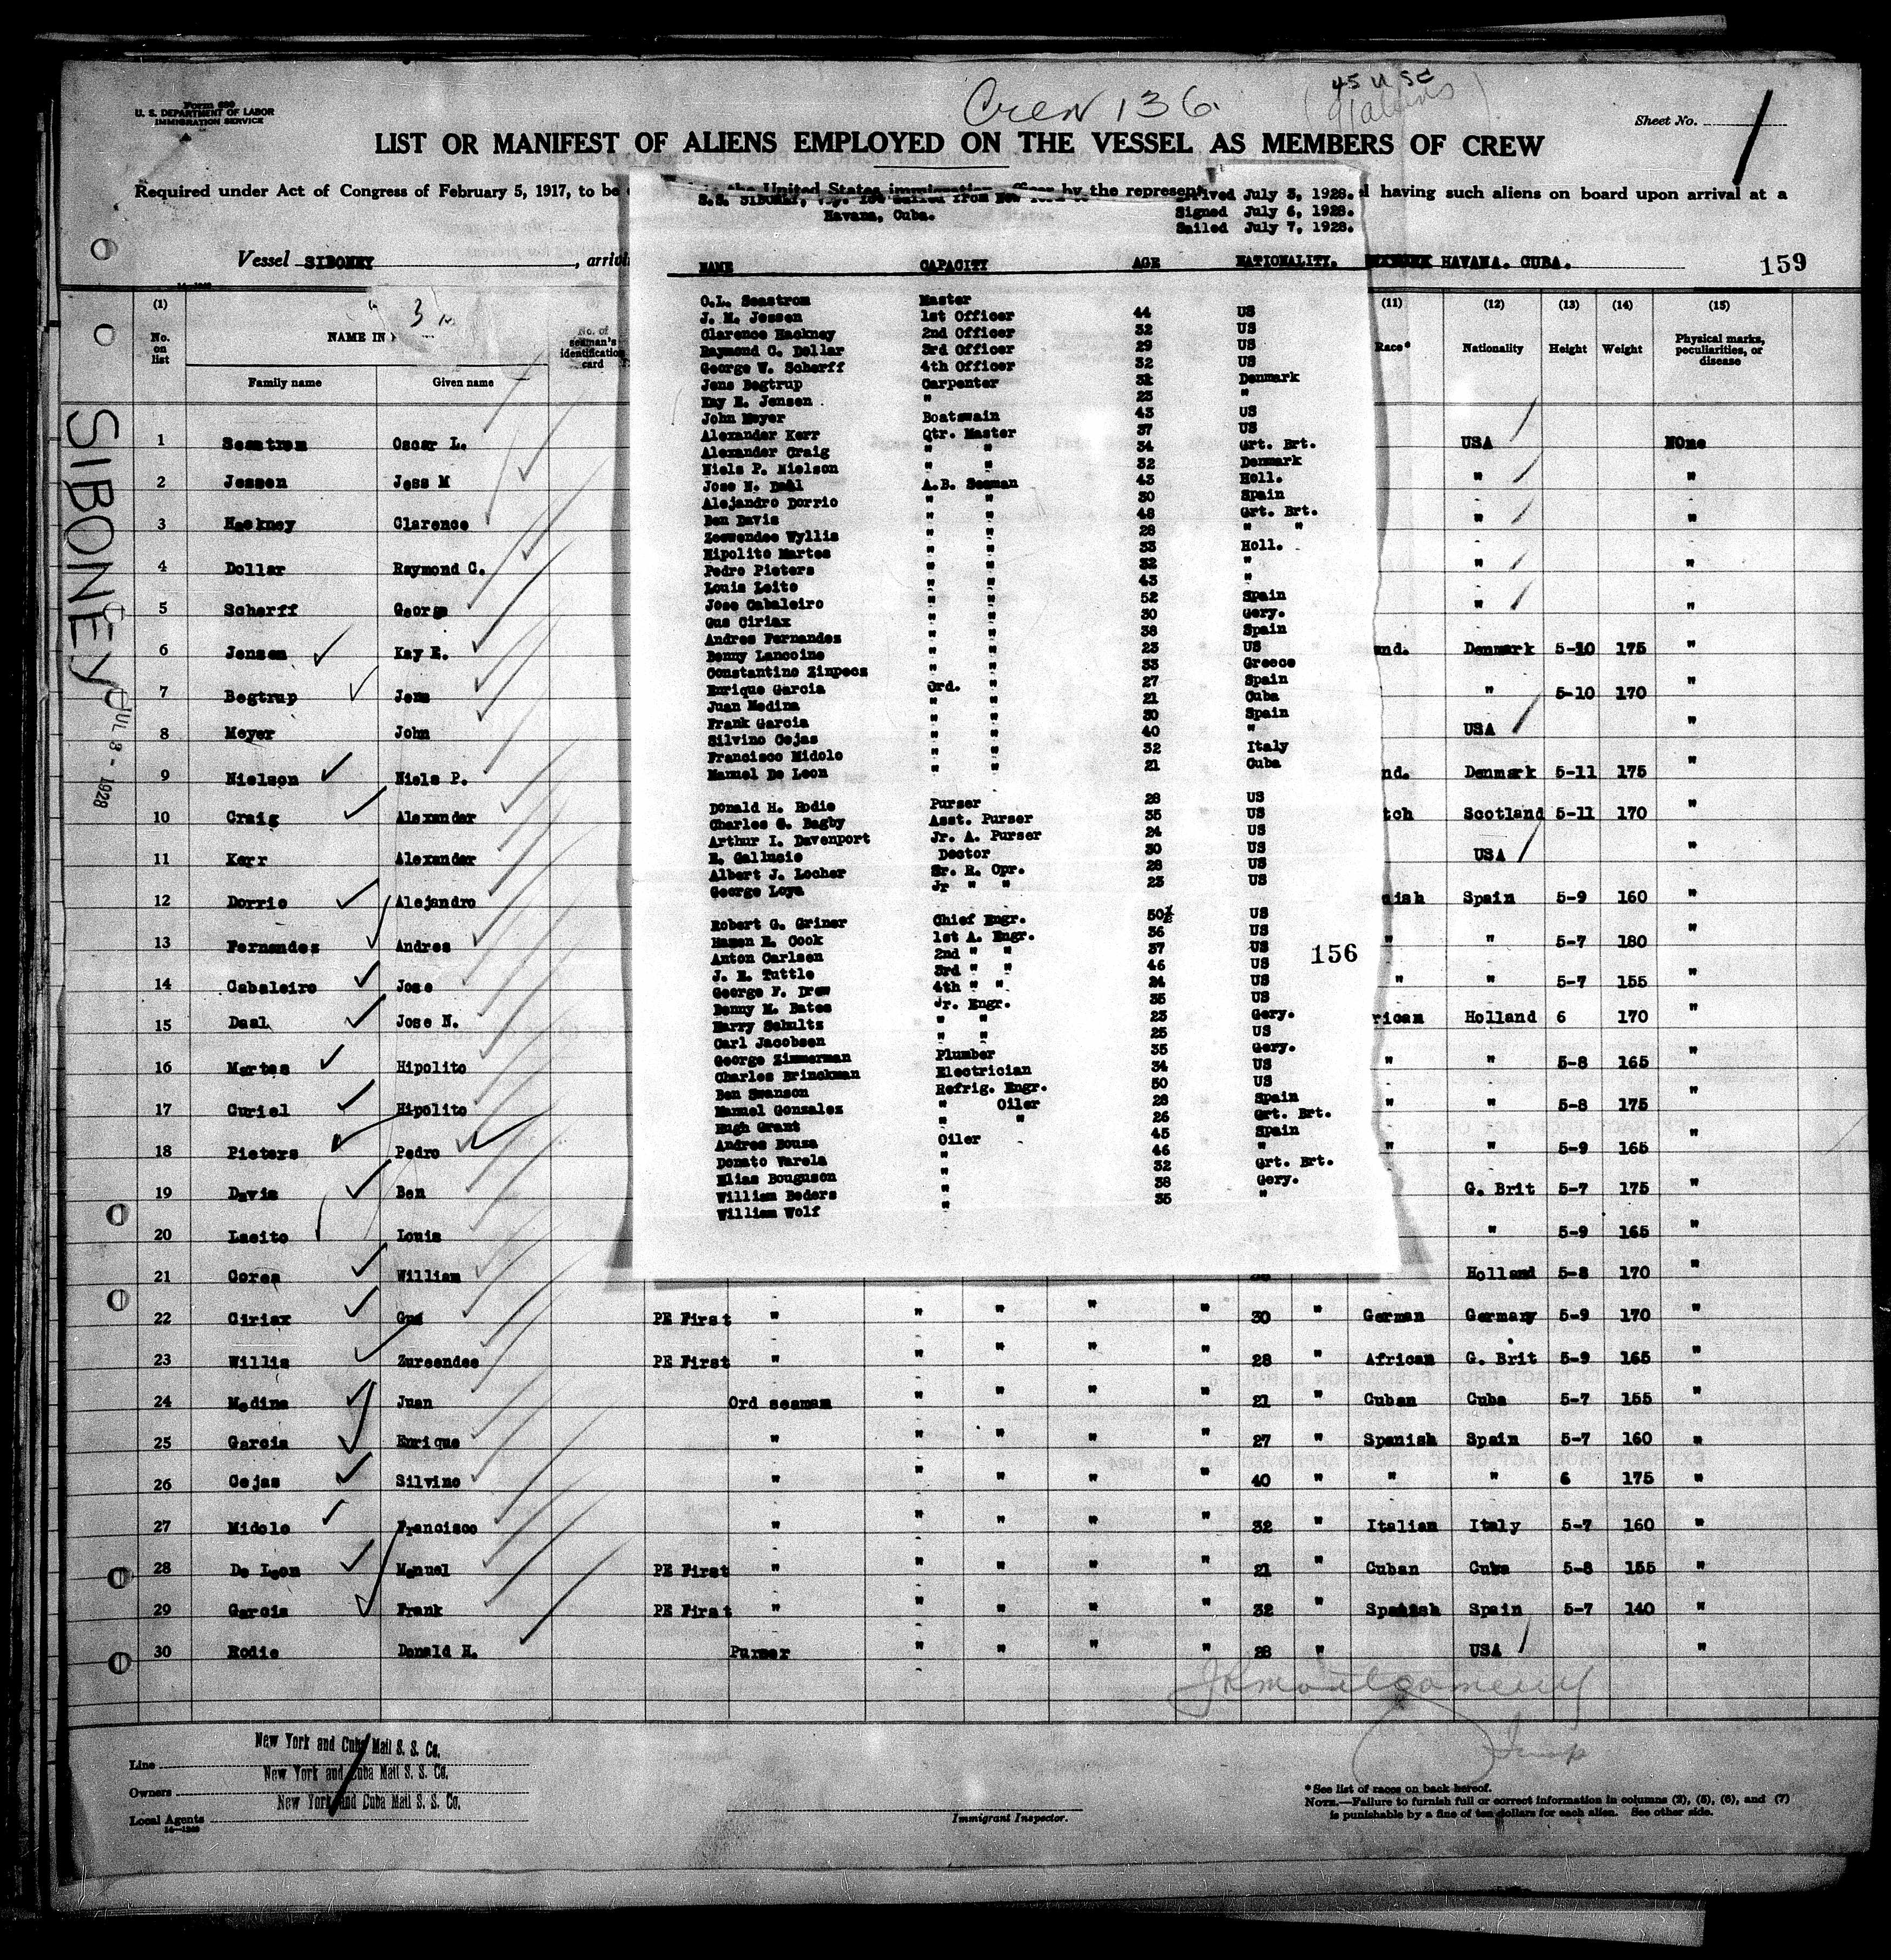 Form 680
U. S. DEPARTMENT OF LABOR
IMMIGRATION SERVICE
Crew 136.
45 USC
Sheet No. 1
LIST OR MANIFEST OF ALIENS EMPLOYED ON THE VESSEL AS MEMBERS OF CREW
Required under Act of Congress of February 5, 1917, to be the United States immigration officer by the represent having such aliens on board upon arrival at a
Vessel SIBONEY, arrivi HAVANA. CUBA. 159
S.S. SIBONEY, sailed from New York to Arrived July 3, 1928.
Havana, Cuba. Signed July 6, 1928.
Sailed July 7, 1928.
NAME CAPACITY AGE NATIONALITY.
O.L. Seastrom Master 44 US
J. M. Jessen 1st Officer 32 US
Clarence Hackney 2nd Officer 29 US
Raymond C. Dollar 3rd Officer 32 US
George W. Scherff 4th Officer
Jens Begtrup Carpenter Denmark
Kay E. Jensen " 23 "
John Meyer Boatswain 43 US
Alexander Kerr Qtr. Master 37 US
Alexander Craig " " 34 Grt. Brt.
Niels P. Nielson " " 32 Denmark
Jose N. Daal A.B. Seaman 43 Holl.
Alejandro Dorrio " " 30 Spain
Ben Davis " " 48 Grt. Brt.
Zeewendee Wyllis " " 28 " "
Hipolito Martes " " 33 Holl.
Pedro Pieters " " 32 "
Louis Leito " " 43 "
Jose Cabaleiro " " 52 Spain
Gus Ciriax " " 30 Gery.
Andres Fernandes " " 38 Spain
Benny Lancoine " " 23 US
Constantine Zinpecs " " 33 Greece
Enrique Garcia Ord. " 27 Spain
Juan Medina " " 21 Cuba
Frank Garcia " " 30 Spain
Silvino Cejas " " 40 "
Francisco Midolo " " 32 Italy
Manuel De Leon " " 21 Cuba
Donald H. Rodie Purser 28 US
Charles G. Bagby Asst. Purser 35 US
Arthur I. Davenport Jr. A. Purser 24 US
E. Gallucio Doctor 30 US
Albert J. Locher Sr. R. Opr. 28 US
George Loya Jr " " 23 US
Robert G. Griner Chief Engr. 50 US
Hamen E. Cook 1st A. Engr. 36 US
Anton Carlsen 2nd " " 37 US
J. E. Tuttle 3rd " " 46 US
George F. Drew 4th " " 24 US
Benny M. Bates Jr. Engr. 35 US
Harry Schultz " " 23 Gery.
Carl Jacobsen " " 25 US
George Zimmerman Plumber 35 Gery.
Charles Brinckman Electrician 34 US
Ben Swanson Refrig. Engr. 50 US
Manuel Gonzales " Oiler 28 Spain
Hugh Grant " " 26 Grt. Brt.
Andres Bouza Oiler 45 Spain
Donato Varela " 46 "
Elias Bouguson " 32 Grt. Brt.
William Beders " 38 Gery.
William Wolf " 35 "
156
SIBONEY
JUL 8 - 1928
(1) (11) (12) (13) (14) (15)
No. on list NAME IN No. of seaman's identification card Race* Nationality Height Weight Physical marks, peculiarities, or disease
Family name Given name
1 Seastrom Oscar L. USA NOne
2 Jessen Jess M " "
3 Hackney Clarence " "
4 Dollar Raymond C. " "
5 Scherff George " "
6 Jensen Kay E. and. Denmark 5-10 175 "
7 Begtrup Jens " 5-10 170 "
8 Meyer John USA "
9 Nielson Niels P. nd. Denmark 5-11 175 "
10 Craig Alexander tch Scotland 5-11 170 "
11 Kerr Alexander USA "
12 Dorrio Alejandro nish Spain 5-9 160 "
13 Fernandes Andres " " 5-7 180 "
14 Cabaleiro Jose " " 5-7 155 "
15 Daal Jose N. rican Holland 6 170 "
16 Martes Hipolito " " 5-8 165 "
17 Curiel Hipolito " " 5-8 175 "
18 Pieters Pedro " " 5-9 165 "
19 Davis Ben G. Brit 5-7 175 "
20 Laeito Louis " 5-9 165 "
21 Gorea William Holland 5-8 170 "
22 Ciriax Gus PE First " " " " " 30 " German Germany 5-9 170 "
23 Willis Zureendee PE First " " " " " 28 " African G. Brit 5-9 165 "
24 Medina Juan Ord seaman " " " " 21 " Cuban Cuba 5-7 155 "
25 Garcia Enrique " " " " " 27 " Spanish Spain 5-7 160 "
26 Cejas Silvino " " " " " 40 " " " 6 175 "
27 Midolo Francisco " " " " " 32 " Italian Italy 5-7 160 "
28 De Leon Manuel PE First " " " " " 21 " Cuban Cuba 5-8 155 "
29 Garcia Frank PE First " " " " " 32 " Spanish Spain 5-7 140 "
30 Rodie Donald H. Purser " " " " 28 " USA "
JKmontgomery
Line New York and Cuba Mail S. S. Co.
Owners New York and Cuba Mail S. S. Co.
Local Agents New York and Cuba Mail S. S. Co.
Immigrant Inspector.
*See list of races on back hereof.
NOTE.—Failure to furnish full or correct information in columns (2), (5), (6), and (7)
is punishable by a fine of ten dollars for each alien. See other side.